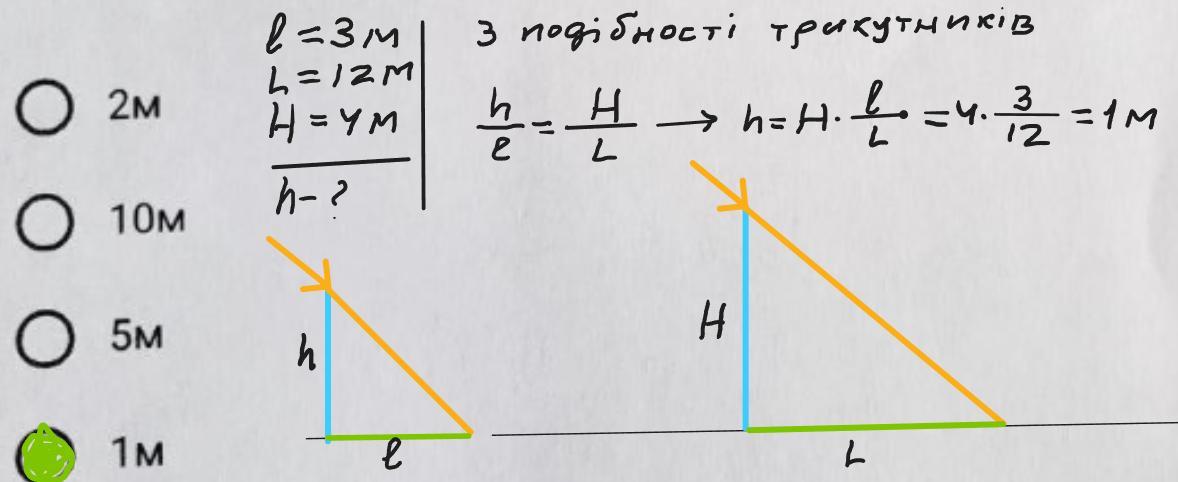 2м
10м
5м
1м
l = 3 м
L = 12 м
H = 4 м
h - ?
З подібності трикутників
h/l = H/L → h = H · l/L = 4 · 3/12 = 1 м
h
l
H
L